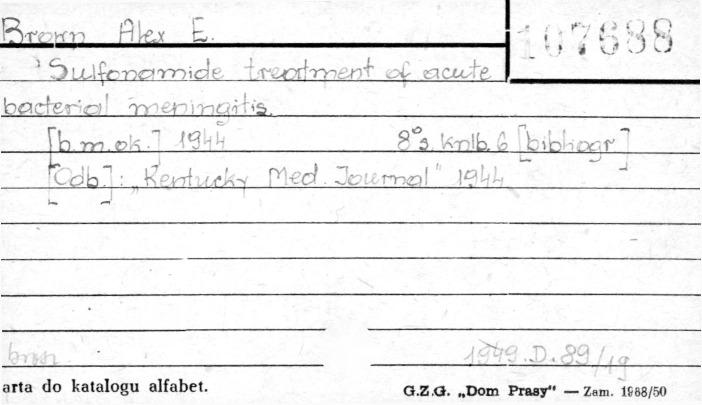 Brown Alex E.
107688
Sulfonamide treatment of acute
bacterial meningitis.
[b.m.ok.] 1944 8° s. knlb. 6 [bibliogr]
[Odb.]: „Kentucky Med. Journal" 1944
brosz.
1949.D.89/19
arta do katalogu alfabet.
G.Z.G. „Dom Prasy" — Zam. 1968/50